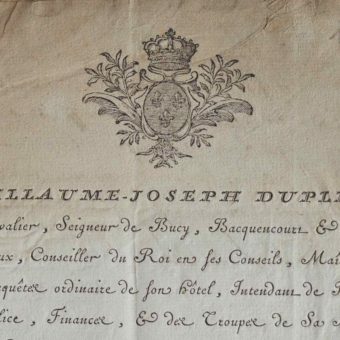 ILLAUME-JOSEPH DUPLE
valier, Seigneur de Bucy, Bacquencourt &
ux, Conseiller du Roi en ses Conseils, Maî
quêtes ordinaire de son hôtel, Intendant de
lice, Finances, & des Troupes de Sa